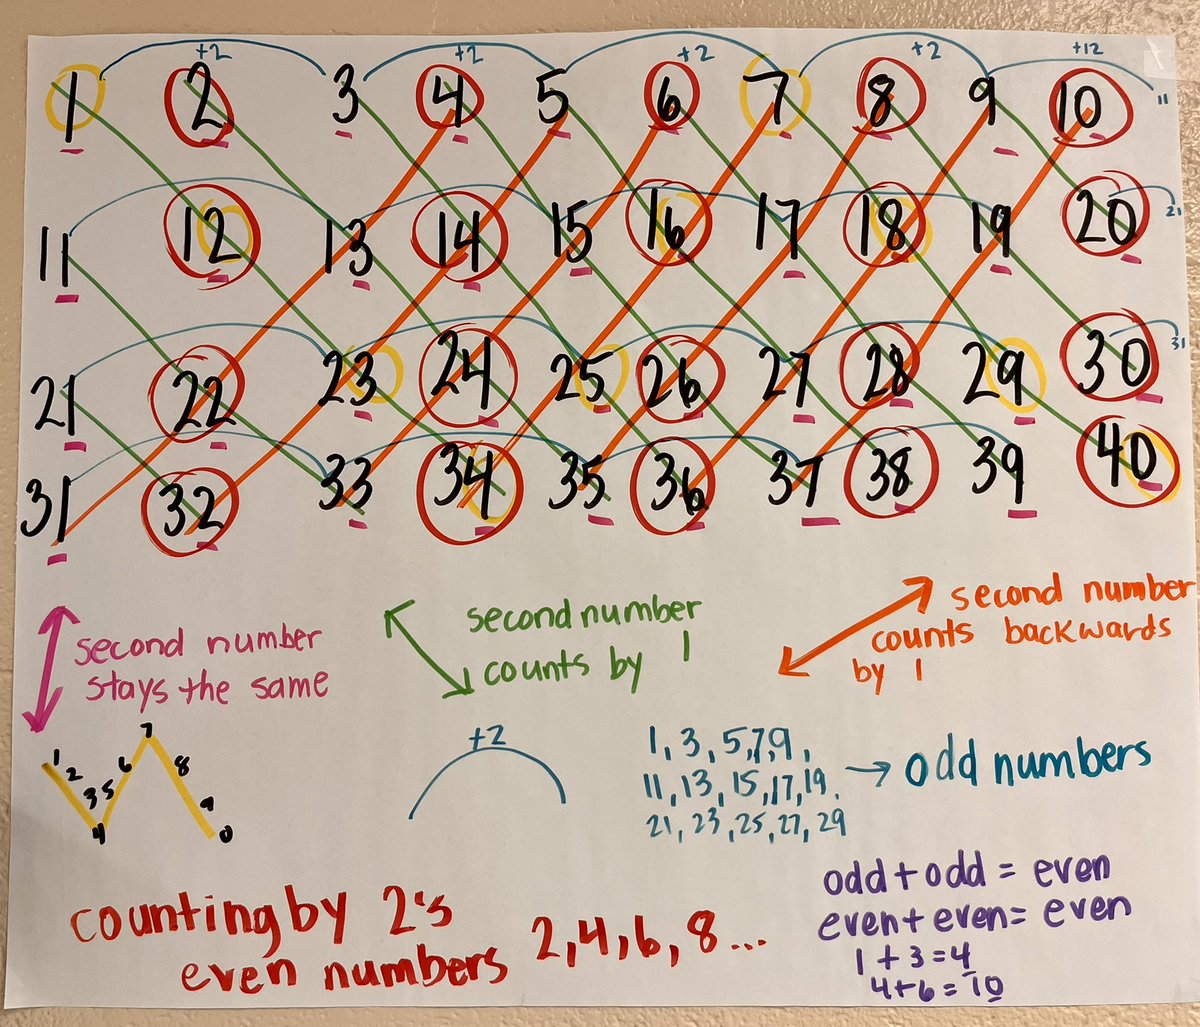 +2 +2 +2 +2 +12
1 2 3 4 5 6 7 8 9 10 11
11 12 13 14 15 16 17 18 19 20 21
21 22 23 24 25 26 27 28 29 30 31
31 32 33 34 35 36 37 38 39 40
second number
stays the same
second number
counts by 1
second number
counts backwards
by 1
1 2 3 4 5 6 7 8 9 0
+2
1, 3, 5, 7, 9,
11, 13, 15, 17, 19.
21, 23, 25, 27, 29
→ odd numbers
counting by 2's
even numbers
2, 4, 6, 8...
odd + odd = even
even + even = even
1 + 3 = 4
4 + 6 = 10